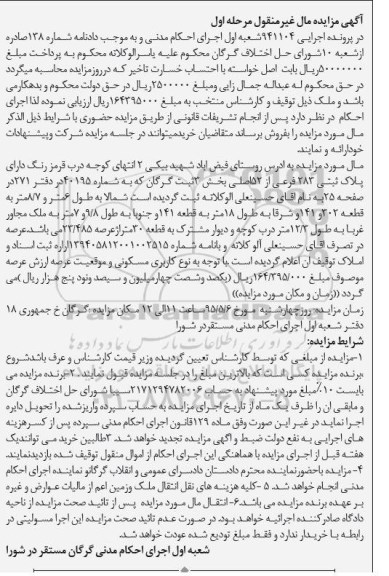 آگهی مزایده مال غیرمنقول مرحله اول
در پرونده اجرایی ۹۴۱۱۰۴شعبه اول اجرای احکام مدنی و به موجب دادنامه شماره ۱۳۸صادره
ازشعبه ۱۰شورای حل اختلاف گرگان محکوم علیه یاسرالوکلاته محکوم به پرداخت مبلغ
۵۰۰۰۰۰۰۰ریال بابت اصل خواسته با احتساب خسارت تاخیر که درروزمزایده محاسبه میگردد
در حق محکوم له عبداله جمال زایی ومبلغ ۲۵۰۰۰۰۰ریال در حق دولت محکوم و بدهکارمی
باشد و ملک ذیل توقیف و کارشناس منتخب به مبلغ ۱۶۴۳۹۵۰۰۰ریال ارزیابی نموده لذا اجرای
احکام در نظر دارد پس از انجام تشریفات قانونی از طریق مزایده حضوری با شرایط ذیل الذکر
مال مورد مزایده را بفروش برساند متقاضیان خریدمیتوانند در جلسه مزایده شرکت وپیشنهادات
خودارائه و نمایند.
مال مورد مزایده به ادرس روستای فیض اباد شهید بیکی ۲ انتهای کوچه درب قرمز رنگ دارای
پلاک ثبتی ۲۸۳ فرعی از ۵۲اصلی بخش ۳ثبت گرگان که به شماره ۴۰۱۹۵در دفتر ۲۷۱در
صفحه ۲۵به نام اقای حسینعلی الوکلاته ثبت گردیده است شمالا به طول ۶متر و ۸/۷متر به
قطعه ۳۰۲و ۱۴۱و شرقا به طول ۱۸متر به قطعه ۱۴۱ و جنوبا به طول ۹/۸و ۷متر به ملک مجاور
غربا به طول ۱۲/۳متر درب کوچه و دیوار مشترک به قطعه ۳۰۰متراژعرصه ۲۳۳/۴۸۵می باشد،عرصه
در تصرف اقای حسینعلی آلو کلاته و بانامه شماره ۱۳۹۴۰۵۸۱۲۰۰۱۰۰۲۵۱۵اراره ثبت اسناد و
املاک توقیف ان اعلام گردیده است .با توجه به نوع کاربری مسکونی و موقعیت عرصه ارزش عرصه
موصوف مبلغ ۱۶۴/۳۹۵/۰۰۰ریال (یکصد وشصت چهارمیلیون و سیصد ونود پنج هزار ریال )می
گردد ((زمان و مکان مورد مزایده))
زمان مزایده: روزچهارشنبه مورخ ۹۵/۵/۶ ساعت ۱۱الی ۱۲ مکان مزایده :گرگان خ جمهوری ۱۸
دفتر شعبه اول اجرای احکام مدنی مستقردر شورا
شرایط مزایده:
۱-مزایده از مبلغی که توسط کارشناس تعیین گردیده وزیر قیمت کارشناس و عرف باشدشروع
برنده مزایده کسی است که بالاترین مبلغ را در جلسه مزایده قبول نمایند. ۲-برنده مزایده می
بایست ۱۰٪مبلغ موردپیشنهاد به حساب ۲۱۷۱۲۹۴۷۸۲۰۰۶سپا شورای حل اختلاف گرگان
و مابقی ان را ظرف یک ماه از تاریخ اجرای مزایده به حساب سپرده واریزشده را تحویل دایره
اجرا نماید در غیر این صورت وفق ماده ۱۲۹قانون اجرای احکام مدنی سپرده پس از کسرهزینه
های اجرایی به نفع دولت ضبط و آگهی مزایده تجدید خواهد شد. ۳طالبین خرید می توانندیک
هفته قبل از اجرای مزایده با هماهنگی این اجرای احکام از اموال منقول توقیف شده بازدیدنمایند.
۴-مزایده باحضورنماینده محترم دادستان دادسرای عمومی و انقلاب گرگانو نماینده اجرای احکام
مدنی انجام خواهد شد. ۵ -کلیه هزینه های نقل انتقال ملک وزمین اعم از مالیات عوارض و غیره
بر عهده برنده مزایده می باشد.۶-انتقال مال مورد مزایده پس از تائید صحت مزایده از ناحیه
دادگاه صادرکننده اجرائیه خواهد بود. در صورت عدم تائید صحت مزایده این اجرا مسولیتی در
رابطه با خریدار ندارد و فقط مبلغ تودیع شده عودت خواهد شد.
شعبه اول اجرای احکام مدنی گرگان مستقر در شورا